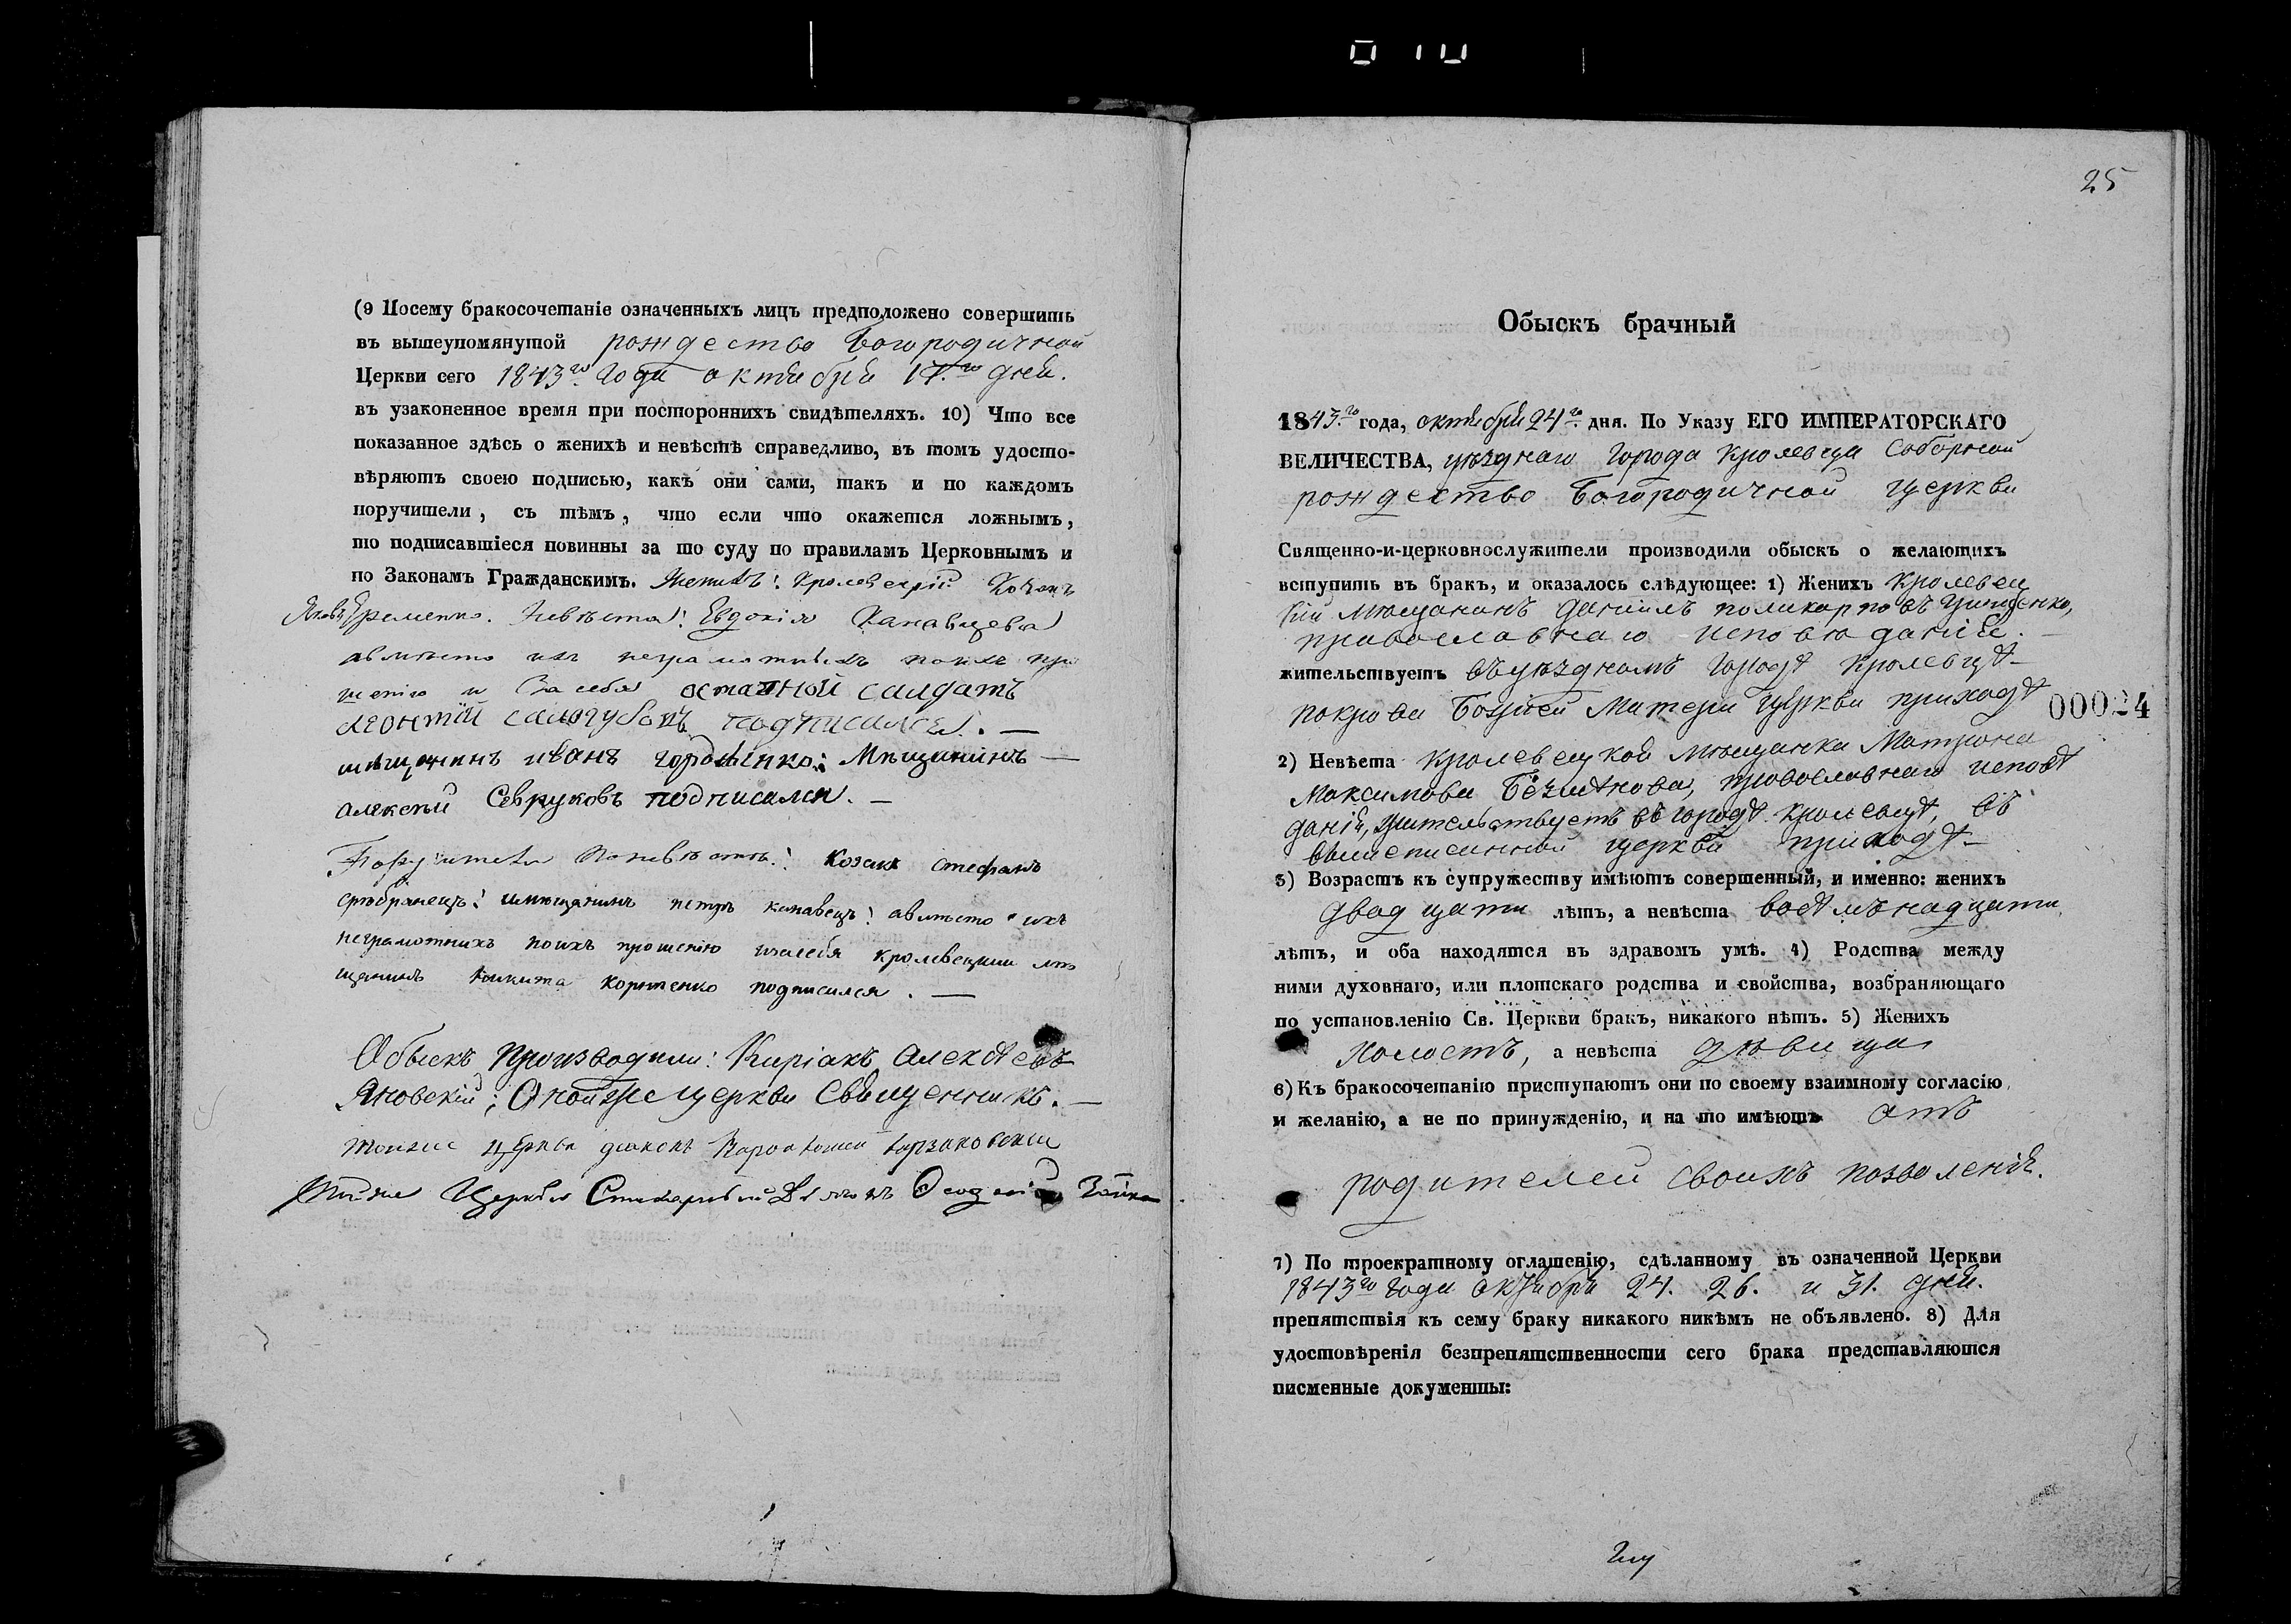 (9 Посему бракосочетаніе означенныхъ лицъ предположено совершить
въ вышеупомянутой рождество богородичной
Церкви сего 1843го. Года октября 17.го дня.
въ узаконенное время при постороннихъ свидѣтеляхъ. 10) Что все
показанное здѣсь о женихѣ и невѣстѣ справедливо, въ томъ удосто-
вѣряютъ своею подписью, какъ они сами, такъ и по каждомъ
поручители, съ тѣмъ, что если что окажется ложнымъ,
то подписавшіеся повинны за то суду по правиламъ Церковнымъ и
по Законамъ Гражданскимъ. Женихъ: Кролевецкій Козакъ
Яковъ Еременко. Невѣста: Евдокія Канавцева
авмѣсто ихъ неграмотныхъ поихъ про
шенію и Засебя салдатъ
леонтій подписался. —
мѣщанинъ иванъ гордѣенко: Мѣщанинъ —
алексѣй Севруковъ подписался. —
Поручители Поневѣстѣ: Козакъ стефанъ
сребрянецъ: имѣщанинъ петръ канавецъ: авмѣсто ихъ
неграмотнихъ поихъ прошенію изасебя кролевецкий мѣ
щанинъ никита подписался. —
Обыскъ производили: Киріакъ Алексѣевъ
Яновскій; Оной же церкви Священникъ. —
тоижъ церкви діаконъ
Тойже Церкви Стихарный Дьячокъ Зайко
25
Обыскъ брачный
1843.го года, октября 24го. дня. По Указу ЕГО ИМПЕРАТОРСКАГО
ВЕЛИЧЕСТВА, уѣзднаго Города Кролевца Соборной
рождество Богородичной церкви
Священно-и-церковнослужители производили обыскъ о желающихъ
вступить въ бракъ, и оказалось слѣдующее: 1) Женихъ Кролевец
кій мѣщанинъ Даніилъ поликарповъ
православнаго исповѣданія. —
жительствуетъ въуѣздномъ городѣ Кролевцѣ —
покрова Божіей Матери церкви приходѣ
00024
2) Невѣста Кролевецкой мѣщанки Матрона
Максимова православнаго исповѣ
данія, жительствуетъ въ городѣ Кролевцѣ, въ
вышеписанной церкви приходѣ —
3) Возрастъ къ супружеству имѣютъ совершенный, и именно: женихъ
двадцати лѣтъ, а невѣста восѣмънадцати
лѣтъ, и оба находятся въ здравомъ умѣ. 4) Родства между
ними духовнаго, или плотскаго родства и свойства, возбраняющаго
по установленію Св. Церкви бракъ, никакого нѣтъ. 5) Женихъ
холостъ, а невѣста дѣвица
6) Къ бракосочетанію приступаютъ они по своему взаимному согласію
и желанію, а не по принужденію, и на то имѣютъ отъ
родителей своихъ позволенія.
7) По троекратному оглашенію, сдѣланному въ означенной Церкви
1843го года октября 24. 26. и 31. дня.
препятствія къ сему браку никакого никѣмъ не объявлено. 8) Для
удостовѣренія безпрепятственности сего брака представляются
писменные документы: